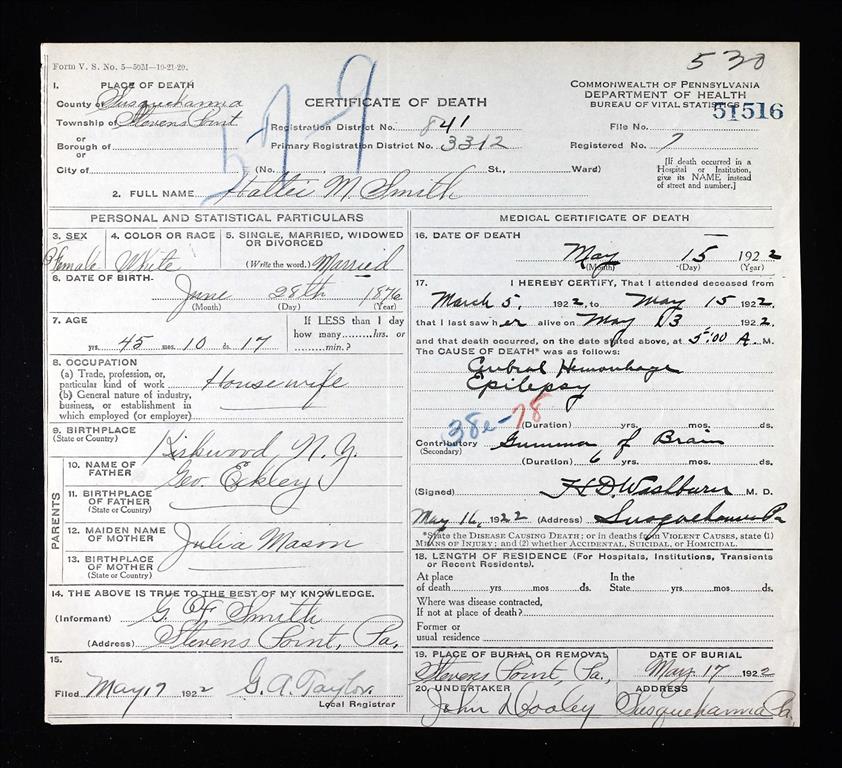 Form V. S. No. 5—50M—10-21-20.
530
1. PLACE OF DEATH
County of Susquehanna
Township of Stevens Point
or
Borough of
or
City of
579
CERTIFICATE OF DEATH
Registration District No. 841
Primary Registration District No. 3312
(No. , St., Ward)
COMMONWEALTH OF PENNSYLVANIA
DEPARTMENT OF HEALTH
BUREAU OF VITAL STATISTICS
51516
File No.
Registered No. 7
[If death occurred in a
Hospital or Institution,
give its NAME instead
of street and number.]
2. FULL NAME Hattie M. Smith
PERSONAL AND STATISTICAL PARTICULARS
3. SEX
Female
4. COLOR OR RACE
White
5. SINGLE, MARRIED, WIDOWED
OR DIVORCED
(Write the word.) Married
6. DATE OF BIRTH
June 28th 1876
(Month) (Day) (Year)
7. AGE
45 yrs. 10 mos. 17 ds.
If LESS than 1 day
how many hrs. or
min.?
8. OCCUPATION
(a) Trade, profession, or
particular kind of work Housewife
(b) General nature of industry,
business, or establishment in
which employed (or employer)
9. BIRTHPLACE
(State or Country)
Kirkwood, N. Y.
PARENTS
10. NAME OF
FATHER
Geo. Eckley
11. BIRTHPLACE
OF FATHER
(State or Country)
12. MAIDEN NAME
OF MOTHER
Julia Mason
13. BIRTHPLACE
OF MOTHER
(State or Country)
14. THE ABOVE IS TRUE TO THE BEST OF MY KNOWLEDGE.
(Informant) G. F. Smith
(Address) Stevens Point, Pa.
15.
Filed May 17 1922 G. A. Taylor.
Local Registrar
MEDICAL CERTIFICATE OF DEATH
16. DATE OF DEATH
May 15 1922
(Month) (Day) (Year)
17. I HEREBY CERTIFY, That I attended deceased from
March 5, 1922, to May 15 1922,
that I last saw her alive on May 13 1922,
and that death occurred, on the date stated above, at 5:00 A. M.
The CAUSE OF DEATH* was as follows:
Cerebral Hemorrhage
Epilepsy
38e-78
(Duration) yrs. mos. ds.
Contributory Gumma of Brain
(Secondary)
(Duration) 6 yrs. mos. ds.
(Signed) H D. Washburn M. D.
May 16, 1922 (Address) Susquehanna Pa
*State the DISEASE CAUSING DEATH; or in deaths from VIOLENT CAUSES, state (1)
MEANS OF INJURY; and (2) whether ACCIDENTAL, SUICIDAL, or HOMICIDAL.
18. LENGTH OF RESIDENCE (For Hospitals, Institutions, Transients
or Recent Residents).
At place
of death yrs. mos. ds.
In the
State yrs. mos. ds.
Where was disease contracted,
if not at place of death?
Former or
usual residence
19. PLACE OF BURIAL OR REMOVAL
Stevens Point, Pa.,
DATE OF BURIAL
May 17 1922
20. UNDERTAKER
John Dooley
ADDRESS
Susquehanna Pa.